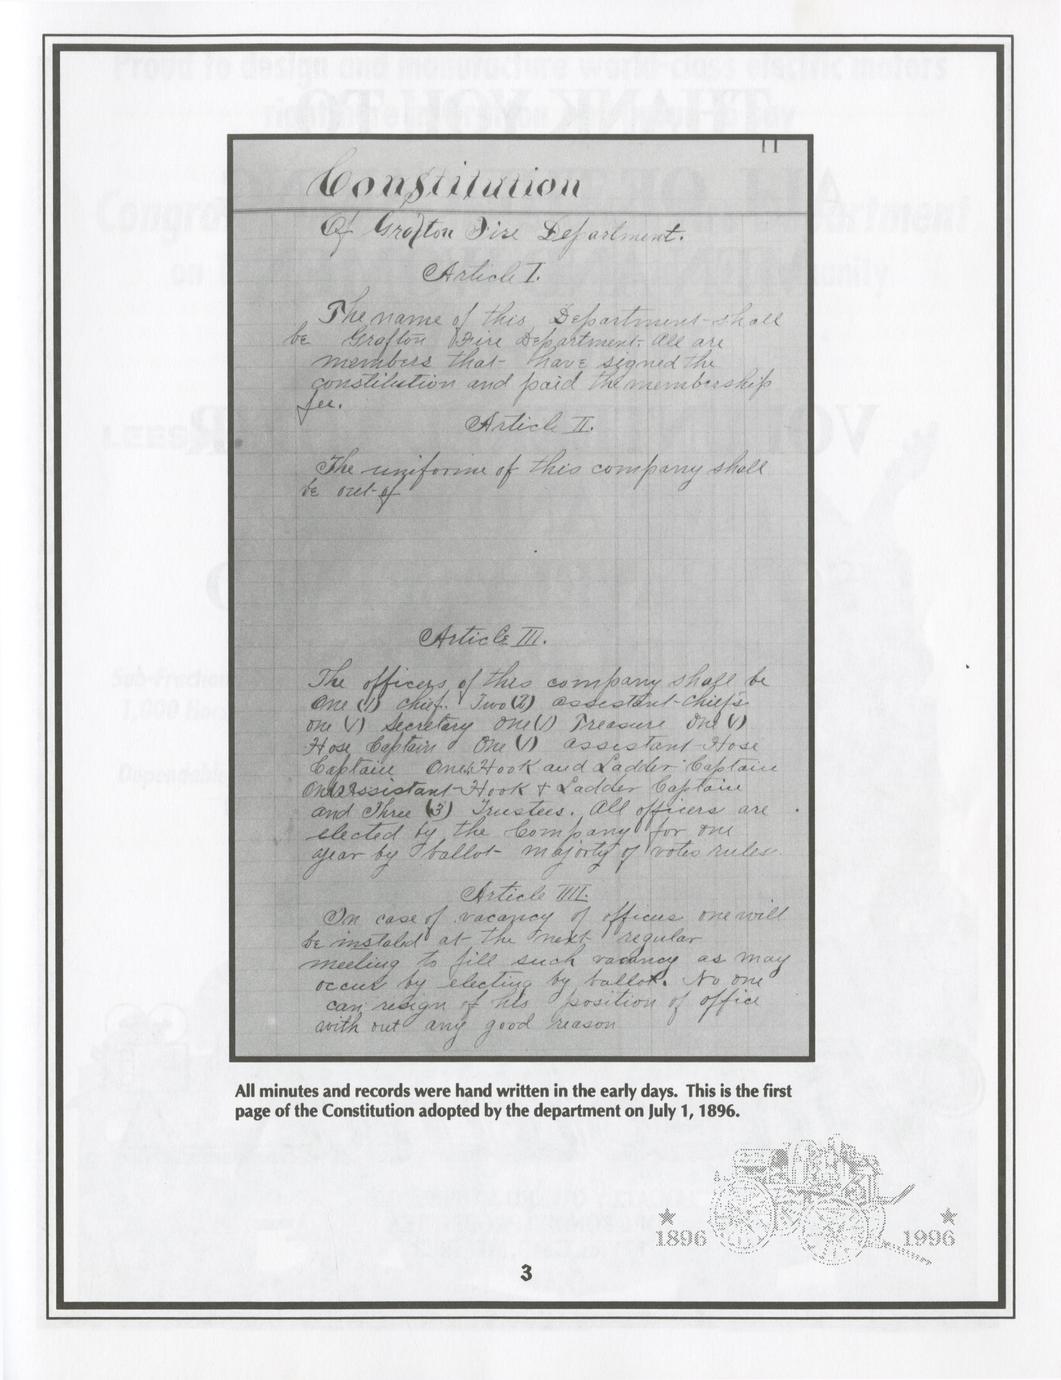 11
Constitution
Of Grafton Fire Department.
Article I.
The name of this Department shall
be Grafton Fire Department. All are
members that have signed the
constitution and paid the membership
fee.
Article II.
The uniforme of this company shall
be out of
Article III.
The officers of this company shall be
One (1) Chief. Two (2) assistant Chiefs
one (1) Secretary One (1) Treasure One (1)
Hose Captain One (1) assistant Hose
Captain One Hook and Ladder Captain
One Assistant Hook & Ladder Captain
and Three (3) Trustees. All officers are
elected by the Company for one
year by ballot majorty of votes rules.
Article IIII.
In case of vacancy of officers one will
be instaled at the next regular
meeting to fill such vacancy as may
occur by electing by ballot. No one
can resign of his position of office
with out any good reason
All minutes and records were hand written in the early days. This is the first
page of the Constitution adopted by the department on July 1, 1896.
1896 1996
3